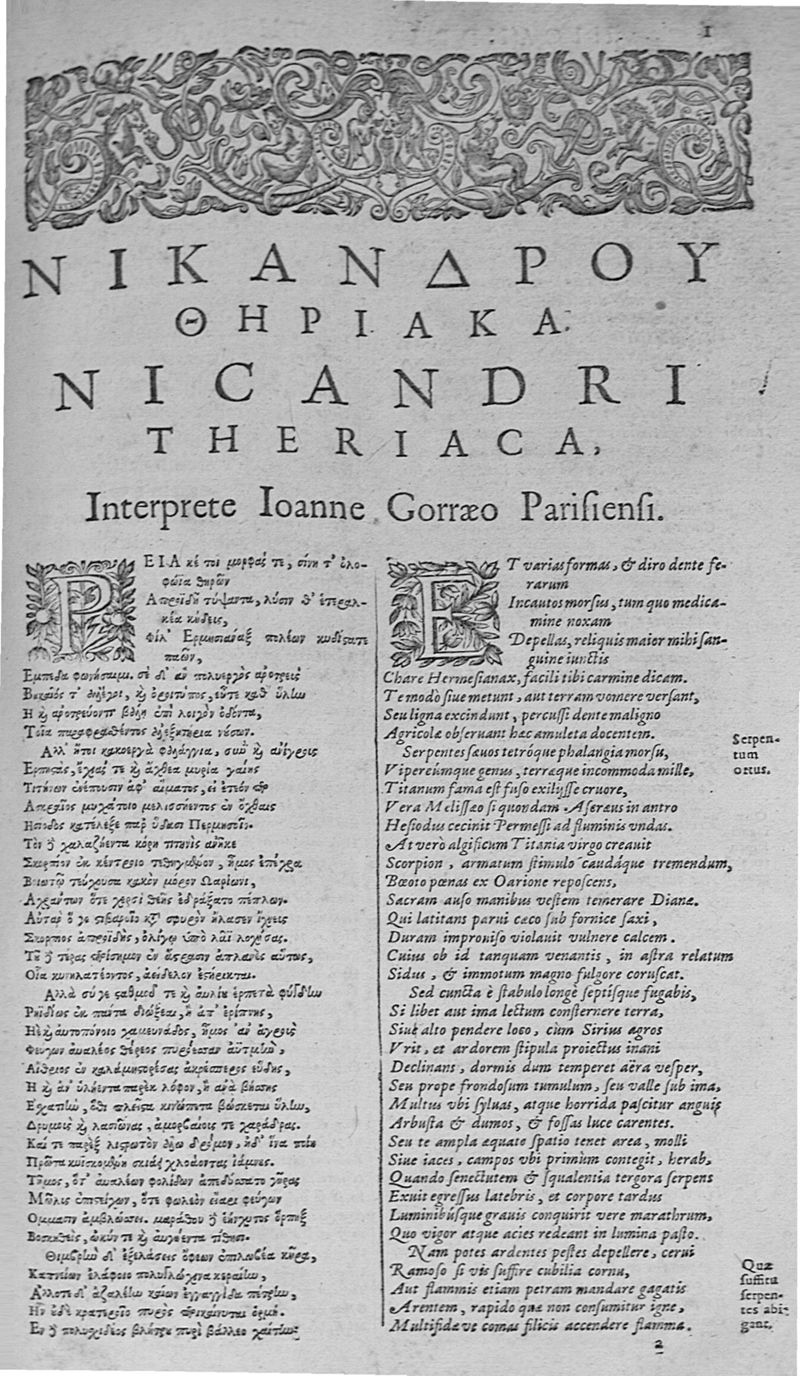 1
ΝΙΚΑΝΔΡΟΥ
ΘΗΡΙΑΚΑ.
NICANDRI
THERIACA,
Interprete Ioanne Gorræo Parisiensi.
ΡΕΙΑ κέ τοι μορφάς τε, σίνη τ' ὀλο-
φώϊα θηρῶν
Ἀπροϊδῆ τύψαντα, λύσιν θ' ἑτεραλ-
κέα κήδευς,
Φίλ' Ἑρμησιάναξ πολέων κυδίστατε
παῶν,
Ἔμπεδα φωνήσαιμι. σὲ δ' ἂν πολυεργὸς ἀροτρεὺς
Βουκαῖός τ' ἀλέγοι, καὶ ὀροιτύπος, εὖτε καθ' ὕλην
Ἢ καὶ ἀροτρεύοντι βάλῃ ἐπὶ λοιγὸν ὀδόντα,
Τοῖα περιφρασθέντος ἀλεξητήρια νούσων.
Ἀλλ' ἤτοι κακοεργὰ φαλάγγια, σὺν καὶ ἀνιγροὺς
Ἑρπηστὰς, ἔχιάς τε καὶ ἄχθεα μυρία γαίης
Τιτήνων ἐνέπουσιν ἀφ' αἵματος, εἰ ἐτεόν περ
Ἀσκραῖος μυχάτοιο μελισσήεντος ἐπ' ὄχθαις
Ἡσίοδος κατέλεξε παρ' ὕδασι Περμησσοῖο.
Τὸν δὲ χαλαζήεντα κόρη τιτηνὶς ἀνῆκε
Σκορπίον ἐκ κέντροιο τεθηγμένον, ἦμος ἐπέχρα
Βοιωτῷ τεύχουσα κακὸν μόρον Ὠαρίωνι,
Ἀχράντων ὅτε χερσὶ θεῆς ἐδράξατο πέπλων.
Αὐτὰρ ὅ γε στιβαροῖο κατὰ σφυρὸν ἤλασεν ἴχνευς
Σκορπίος ἀπροϊδὴς, ὀλίγῳ ὑπὸ λᾶϊ λοχήσας.
Τοῦ δὲ τέρας περίσημον ἐν ἄστρασιν ἀπλανὲς αὔτως,
Οἷα κυνηλατέοντος, ἀείδελον ἐστήρικται.
Ἀλλὰ σύ γε σταθμοῦ τε καὶ αὐλίου ἑρπετὰ φεύξῃ
Ῥηϊδίως ἐκ παντὰ διώξεαι, ἢ ἀπ' ἐρίπνης,
Ἠὲ καὶ αὐτοπόνοιο χαμευνάδος, ἦμος ἂν ἀγροῖς
Φεύγων ἀζαλέου θέρεος πυρόεσσαν ἀϋτμὴν,
Αἴθριος ἐν καλάμῃ στορέσας ἀκρέσπερος εὕδῃς,
Ἢ καὶ ἀν' ὑλήεντα παρὲκ λόφον, ἢ ἀνὰ βήσσης
Ἐσχατιὴν, ὅθι πλεῖστα κινώπετα βόσκεται ὕλην,
Δρυμοὺς καὶ λασιῶνας, ἀμορβαίους τε χαράδρας.
Καί τε πάρεξ λιστρωτὸν ἅλω δρόμον, ἠδ' ἵνα ποίη
Πρῶτα κυϊσκομένη σκιάει χλοάοντας ἰάμνους.
Τῆμος, ὅτ' ἀζαλέων φολίδων ἀπεδύσατο γῆρας
Μῶλυς ἐπιστείβων, ὅτε φωλεὸν εἴαρι φεύγων
Ὄμμασιν ἀμβλώσσει. μαράθου δὲ ἑ νήχυτος ὅρπηξ
Βοσκηθεὶς, ὠκύν τε καὶ αὐγήεντα τίθησι.
Θιμβρὴν δ' ἐξελάσεις ὀφίων ἐπιλωβέα κῆρα,
Καπνίων ἐλάφοιο πολυγλώχινα κεραίην,
Ἄλλοτε δ' ἀζαλέην καίων ἐγγαγίδα πέτρην,
Ἣν οὐδὲ κρατεροῖο πυρὸς περικαίνυται ὁρμή.
Ἐν δὲ πολυσχιδέος βλήτρου πυρὶ βάλλεο χαίτην
ET varias formas, & diro dente fe-
rarum
Incautos morsus, tum quo medica-
mine noxam
Depellas, reliquis maior mihi san-
guine iunctis
Chare Hermesianax, facili tibi carmine dicam.
Te modò siue metunt, aut terram vomere versant,
Seu ligna excindunt, percussi dente maligno
Agricolæ obseruant hæc amuleta docentem.
Serpentes sæuos tetróque phalangia morsu,
Vipereúmque genus, terræque incommoda mille,
Titanum fama est fuso exilysse cruore,
Vera Melissæo si quondam Ascræus in antro
Hesiodus cecinit Permessi ad fluminis vndas.
At verò algificum Titania virgo creauit
Scorpion, armatum stimulo caudáque tremendum,
Bœoto pœnas ex Oarione reposcens,
Sacram auso manibus vestem temerare Dianæ.
Qui latitans parui cæco sub fornice saxi,
Duram improuiso violauit vulnere calcem.
Cuius ob id tanquam venantis, in astra relatum
Sidus, & immotum magno fulgore coruscat.
Sed cuncta è stabulo longè septisque fugabis,
Si libet aut ima lectum consternere terra,
Siue alto pendere loco, cùm Sirius agros
Vrit, et ardorem stipula proiectus inani
Declinans, dormis dum temperet aëra vesper,
Seu prope frondosum tumulum, seu valle sub ima,
Multus vbi syluas, atque horrida pascitur anguis
Arbusta & dumos, & fossas luce carentes.
Seu te ampla æquato spatio tenet area, molli
Siue iaces, campos vbi primùm contegit, herba,
Quando senectutem & squalentia tergora serpens
Exuit egressus latebris, et corpore tardus
Luminibúsque grauis conquirit vere marathrum,
Quo vigor atque acies redeant in lumina pasto.
Nam potes ardentes pestes depellere, cerui
Ramoso si vis suffire cubilia cornu,
Aut flammis etiam petram mandare gagatis
Arentem, rapido quæ non consumitur igne,
Multifidæ ve comas filicis accendere flamma.
Serpen-
tum
ortus.
Quæ
suffitu
serpen-
tes abi-
gant.
2